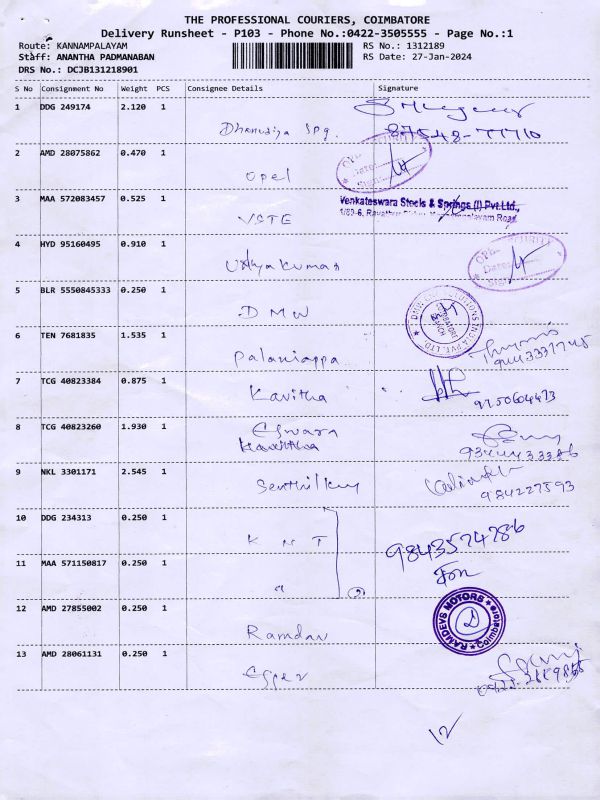 THE PROFESSIONAL COURIERS, COIMBATORE
Delivery Runsheet - P103 - Phone No.:0422-3505555 - Page No.:1
Route: KANNAMPALAYAM RS No.: 1312189
Staff: ANANTHA PADMANABAN RS Date: 27-Jan-2024
DRS No.: DCJB131218901
S No Consignment No Weight PCS Consignee Details Signature
1 DDG 249174 2.120 1
87548-77710
2 AMD 28075862 0.470 1
Opel
3 MAA 572083457 0.525 1 Venkateswara Steels & Springs (I) Pvt.Ltd.,
VSTE
4 HYD 95160495 0.910 1
Udhyakumar
5 BLR 5550845333 0.250 1
DMW
6 TEN 7681835 1.535 1
Palaniappa
7 TCG 40823384 0.875 1
Kavitha 9750604473
8 TCG 40823260 1.930 1
Eswara
9 NKL 3301171 2.545 1
Senthilkum
10 DDG 234313 0.250 1
KNT 9843574786
11 MAA 571150817 0.250 1
For
12 AMD 27855002 0.250 1 RAMDEVS MOTORS
Ramdav Coimbatore
13 AMD 28061131 0.250 1
12